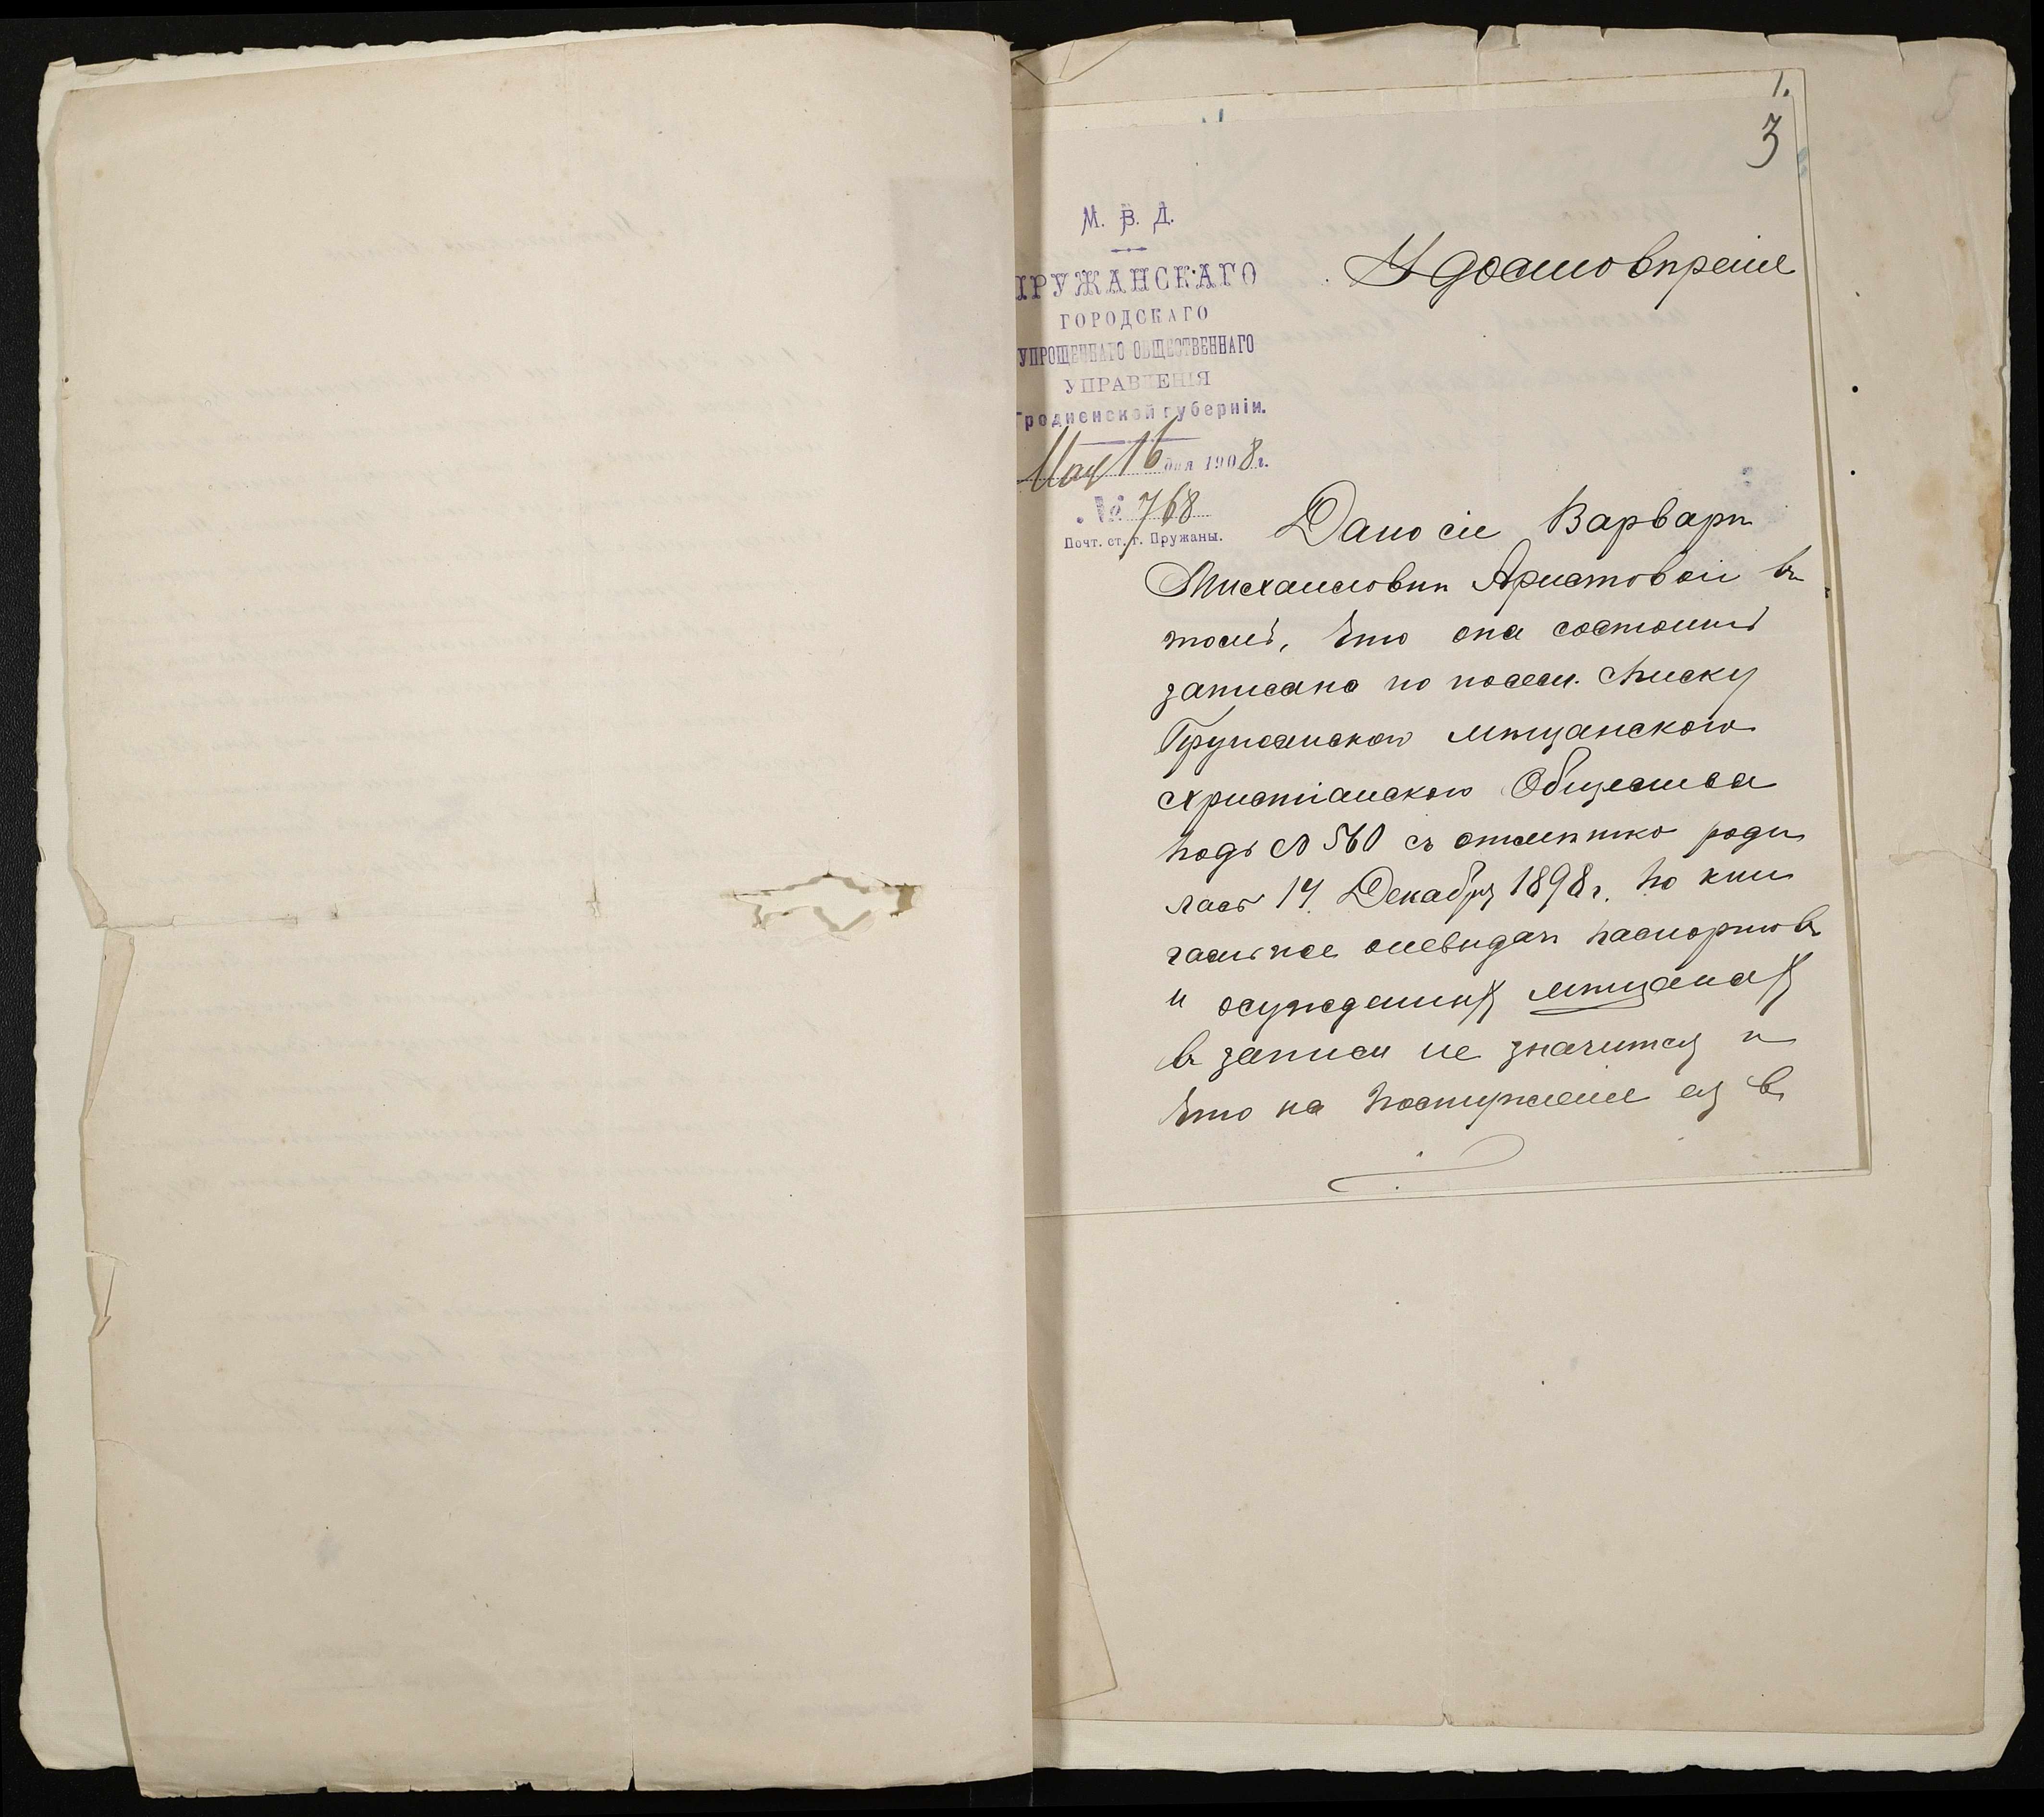 1.
3
М. В. Д.
ПРУЖАНСКАГО
ГОРОДСКАГО
УПРОЩЕННАГО ОБЩЕСТВЕННАГО
УПРАВЛЕНІЯ
Гродненской губерніи.
Мая 16 дня 1908 г.
№ 768
Почт. ст. г. Пружаны.
Удостовѣреніе
Дано сіе Варварѣ
Михаиловнѣ Аристовой въ
томъ, что она состоитъ
записана по посем. списку
Пружанскаго мѣщанскаго
христіанскаго Общества
подъ № 560 съ отмѣткою роди
лась 14 Декабря 1898 г. по кни
паспортовъ
и осужденныхъ мѣщанахъ
въ записи не значится и
что на поступленіе ея въ